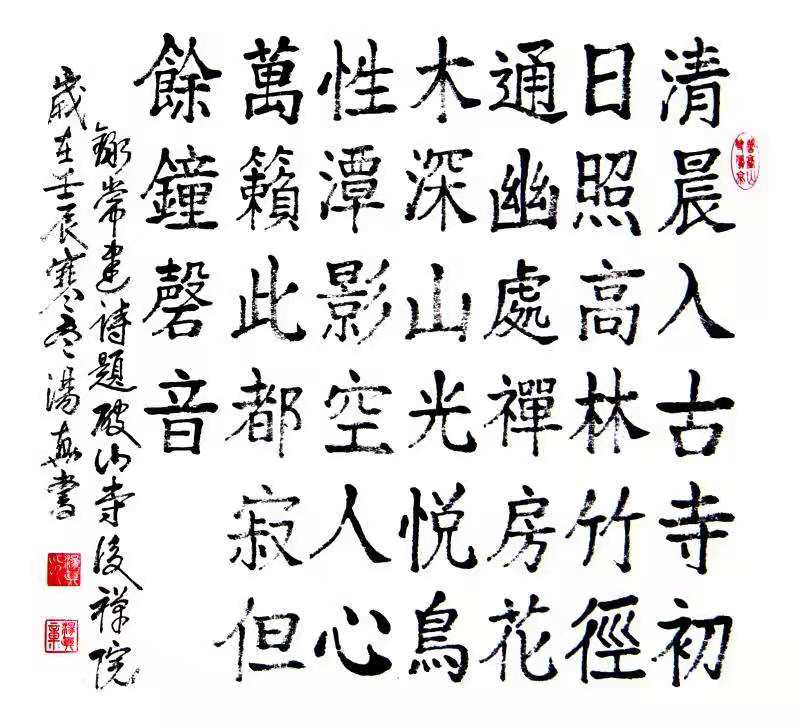 清晨入古寺初
日照高林竹徑
通幽處禪房花
木深山光悦鳥
性潭影空人心
萬籟此都寂但
餘鐘磬音
錄常建詩題破山寺後禪院
歲在壬辰寒冬湯真書